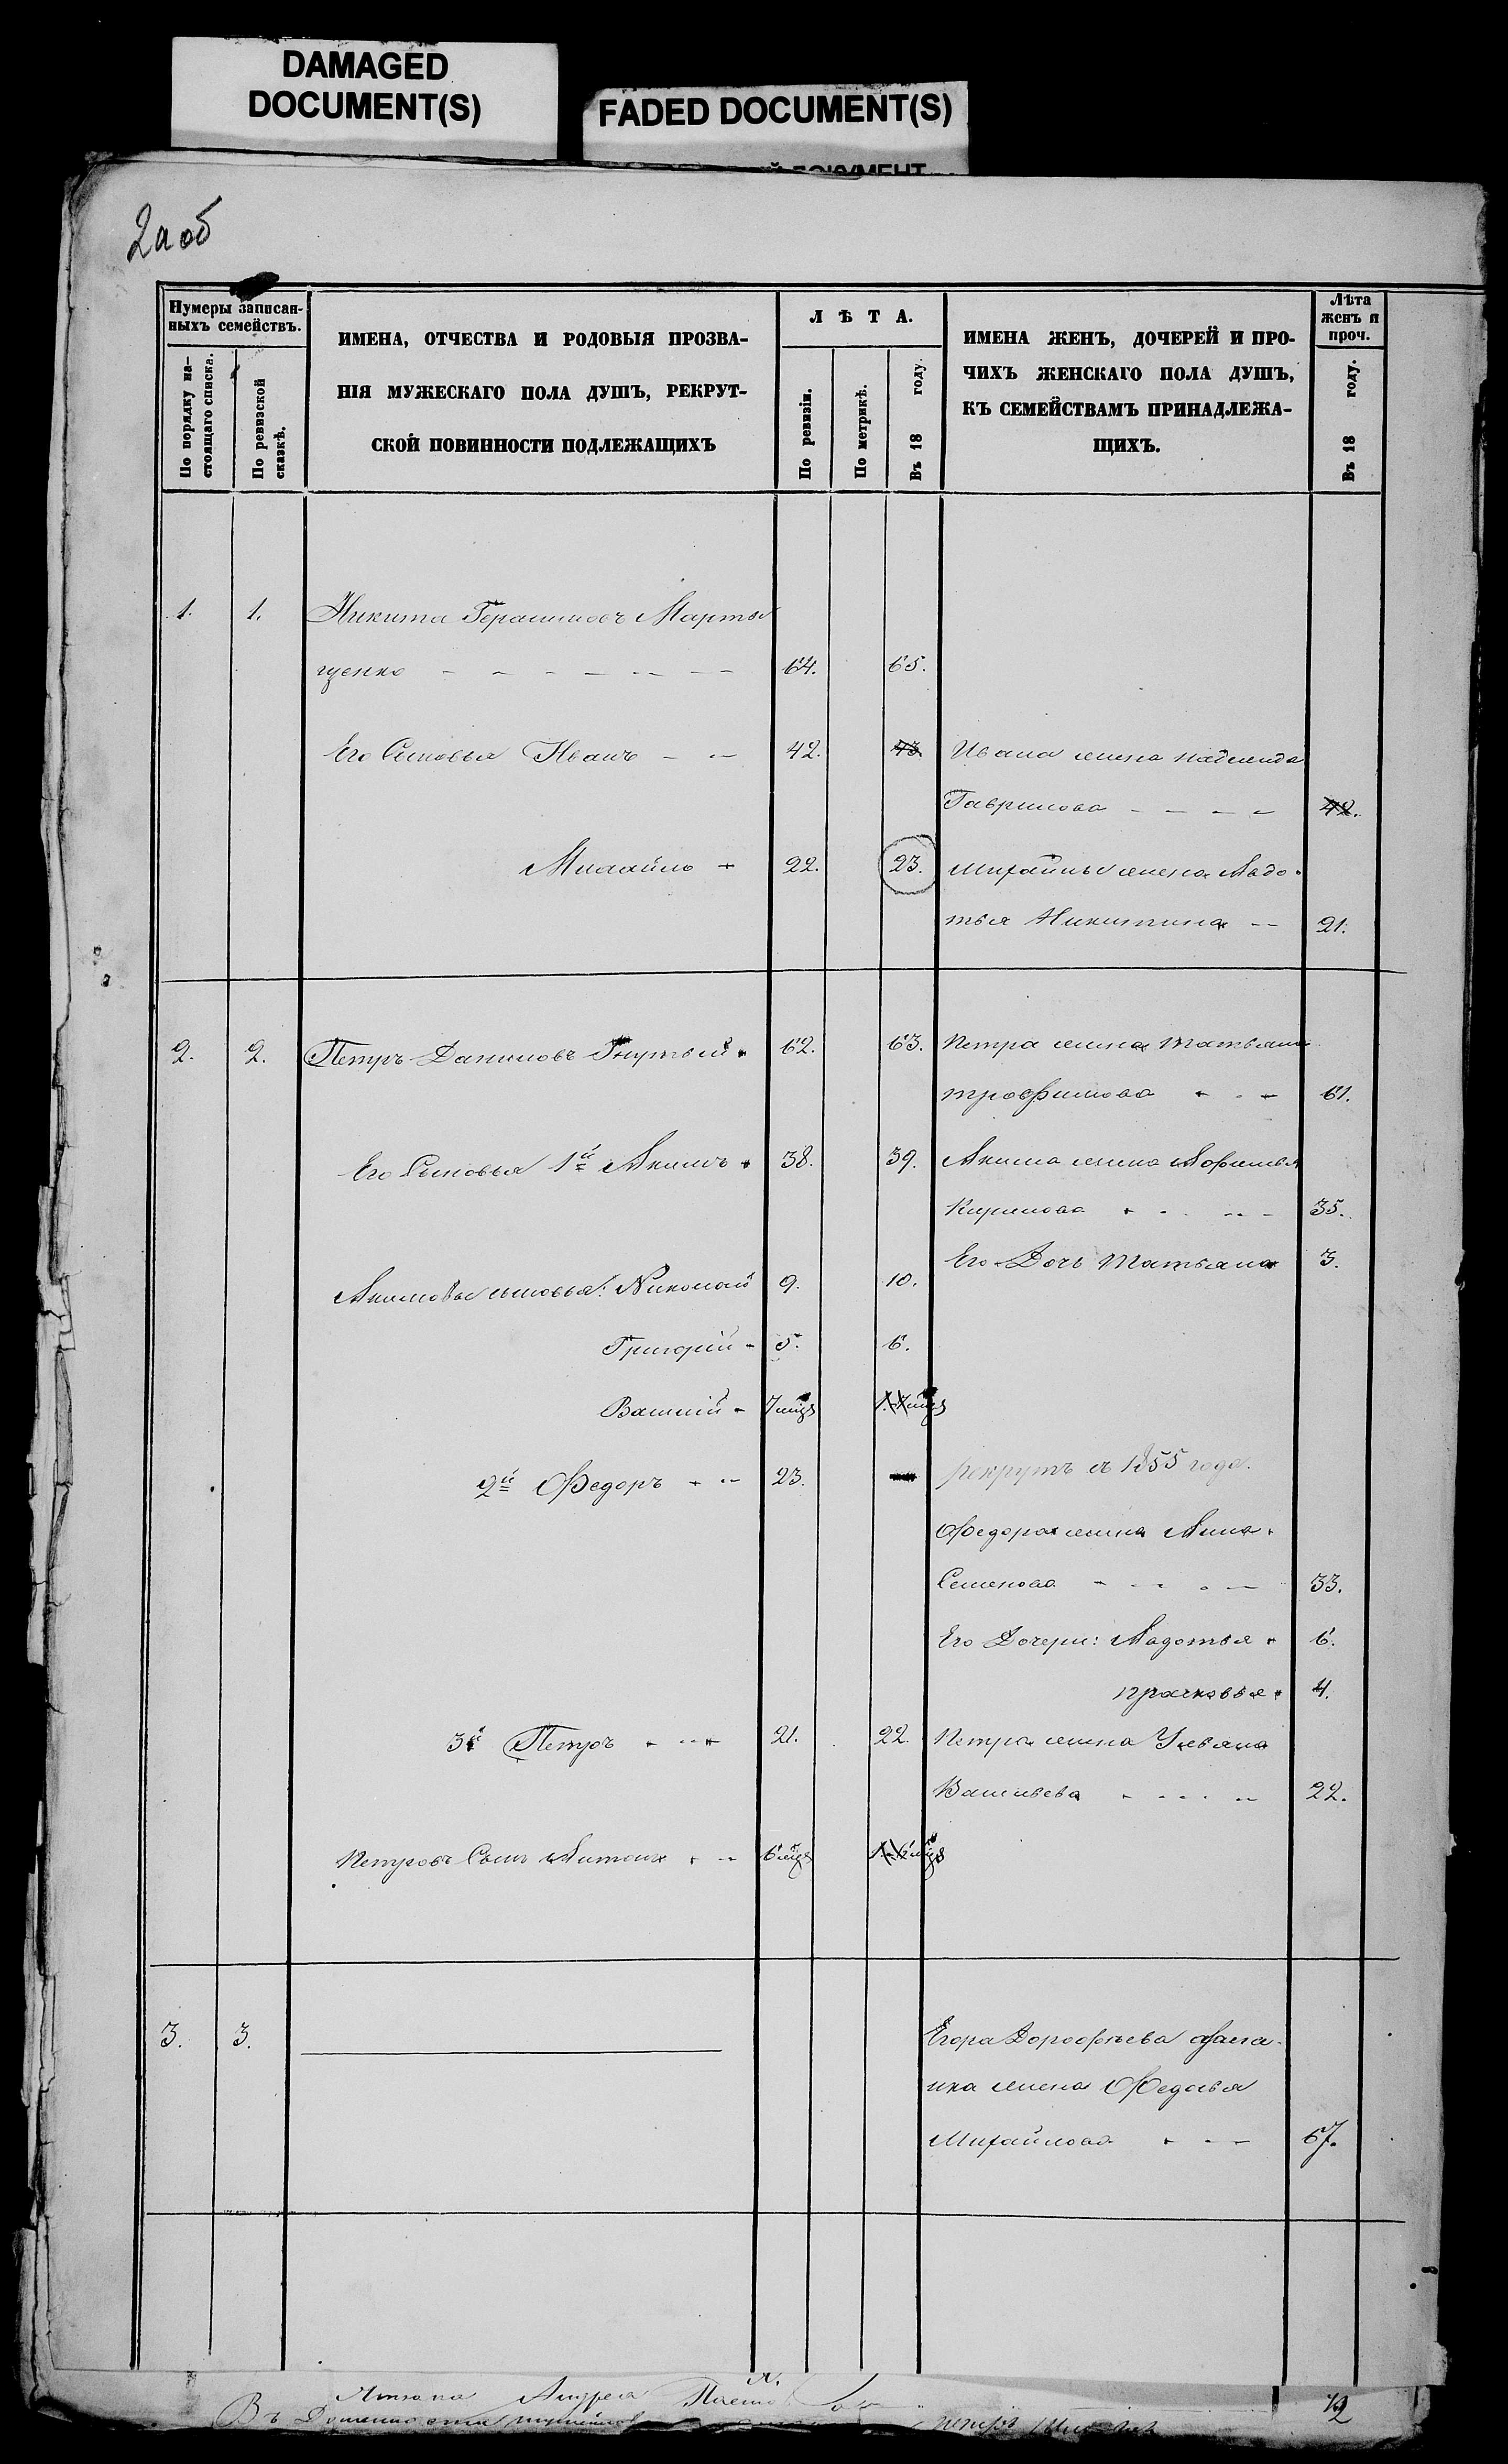 DAMAGED
DOCUMENT(S)
FADED DOCUMENT(S)
ДОКУМЕНТ
2а об
Нумеры записан-
ныхъ семействъ.
По порядку на-
стоящаго списка.
По ревизской
сказкѣ.
ИМЕНА, ОТЧЕСТВА И РОДОВЫЯ ПРОЗВА-
НІЯ МУЖЕСКАГО ПОЛА ДУШЪ, РЕКРУТ-
СКОЙ ПОВИННОСТИ ПОДЛЕЖАЩИХЪ
ЛѢТА.
По ревизіи.
По метрикѣ.
Въ 18 году.
ИМЕНА ЖЕНЪ, ДОЧЕРЕЙ И ПРО-
ЧИХЪ ЖЕНСКАГО ПОЛА ДУШЪ,
КЪ СЕМЕЙСТВАМЪ ПРИНАДЛЕЖА-
ЩИХЪ.
Лѣта
женъ и
проч.
Въ 18 году.
1. 1. Никита Герасимовъ Марты
щенко 64. 65.
Его Сыновья Иванъ 42. 43. Ивана жена
Гаврилова 42.
Михайло 22. 23. Михайлы жена Авдо-
тья Никитина 21.
2. 2. Петръ Даниловъ Гнутый 62. 63. Петра жена Татьяна
Трофимова 61.
Его Сыновья 1й Акимъ 38. 39. Акима жена
Кирилова 35.
Его Дочь Татьяна 3.
Акимовы сыновья: Николай 9. 10.
Григорій 5. 6.
Василій 7 мцв 1.
2й Федоръ 23. рекрутъ съ 1855 года.
Федора жена Анна
Семенова 33.
Его Дочери: Авдотья 6.
Прасковья 4.
3й Петръ 21. 22. Петра жена Ульяна
Васильева 22.
Петровъ Сынъ Антонъ 6 мцв 1.
3. 3. Егора Дорофѣева
жена Федосья
Михайлова 67.
Андрея
Въ
12